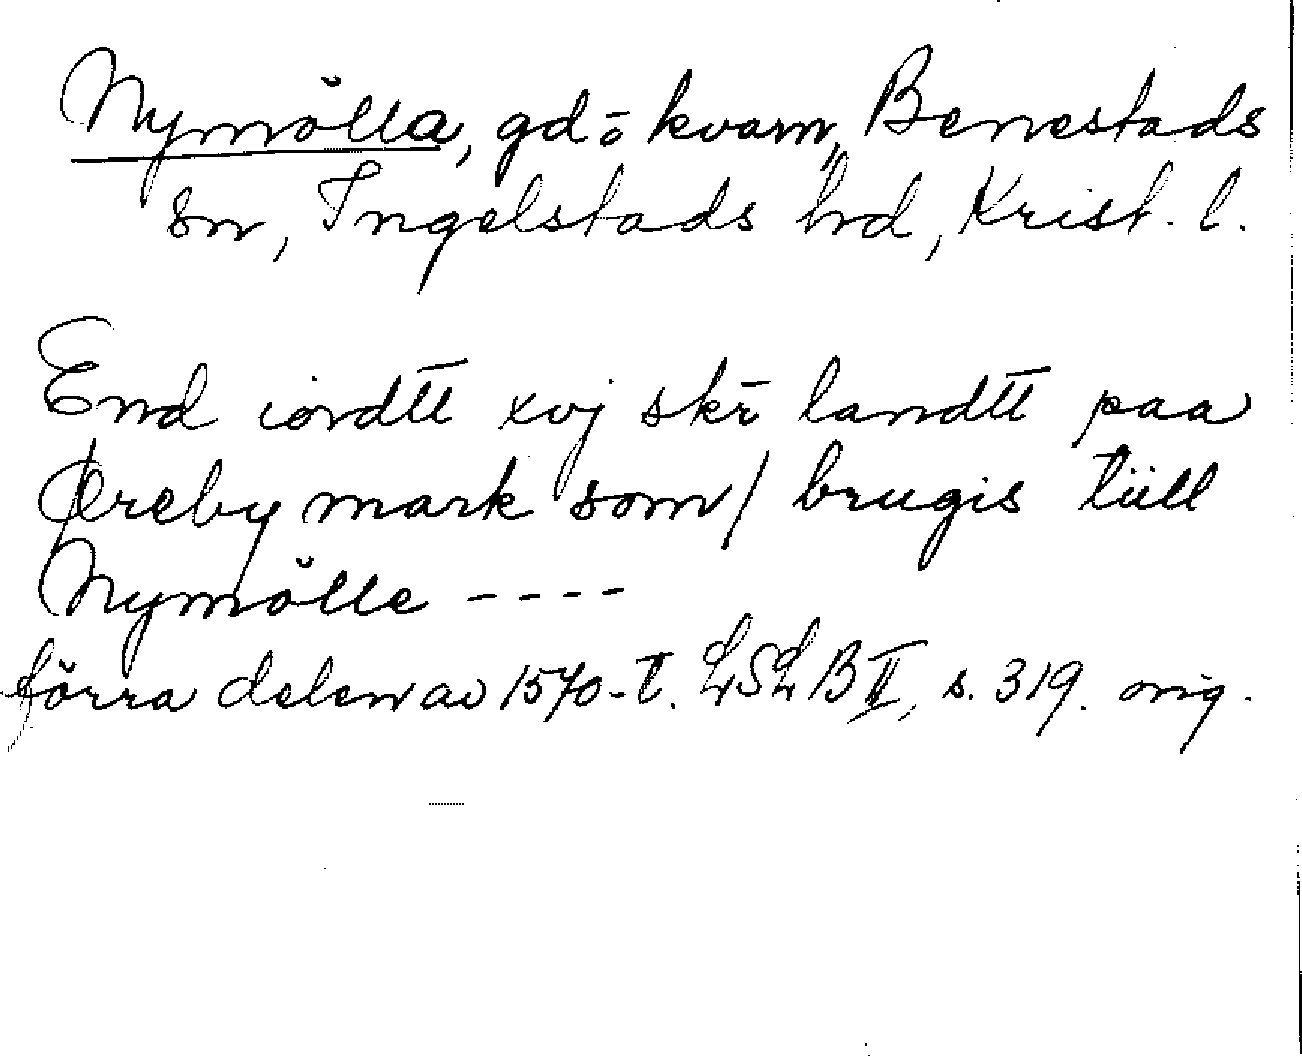 Nymölla, gd o kvarn, Benestads
sn, Ingelstads hrd, Krist. l.
End iordtt xvj skr̄ landtt paa
Øreby mark som / brugis tiill
Nymölle ----
förra delen av 1570-t. LSLB II, s. 319. orig.